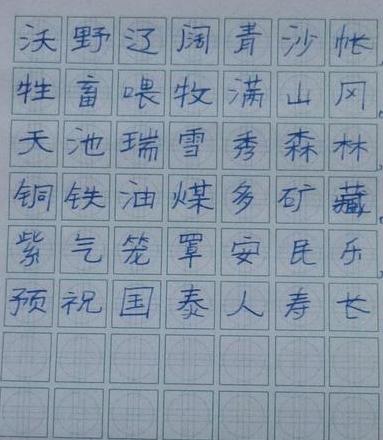 沃野辽阔青沙帐，
牲畜喂牧满山冈。
天池瑞雪秀森林，
铜铁油煤多矿藏。
紫气笼罩安民乐，
预祝国泰人寿长